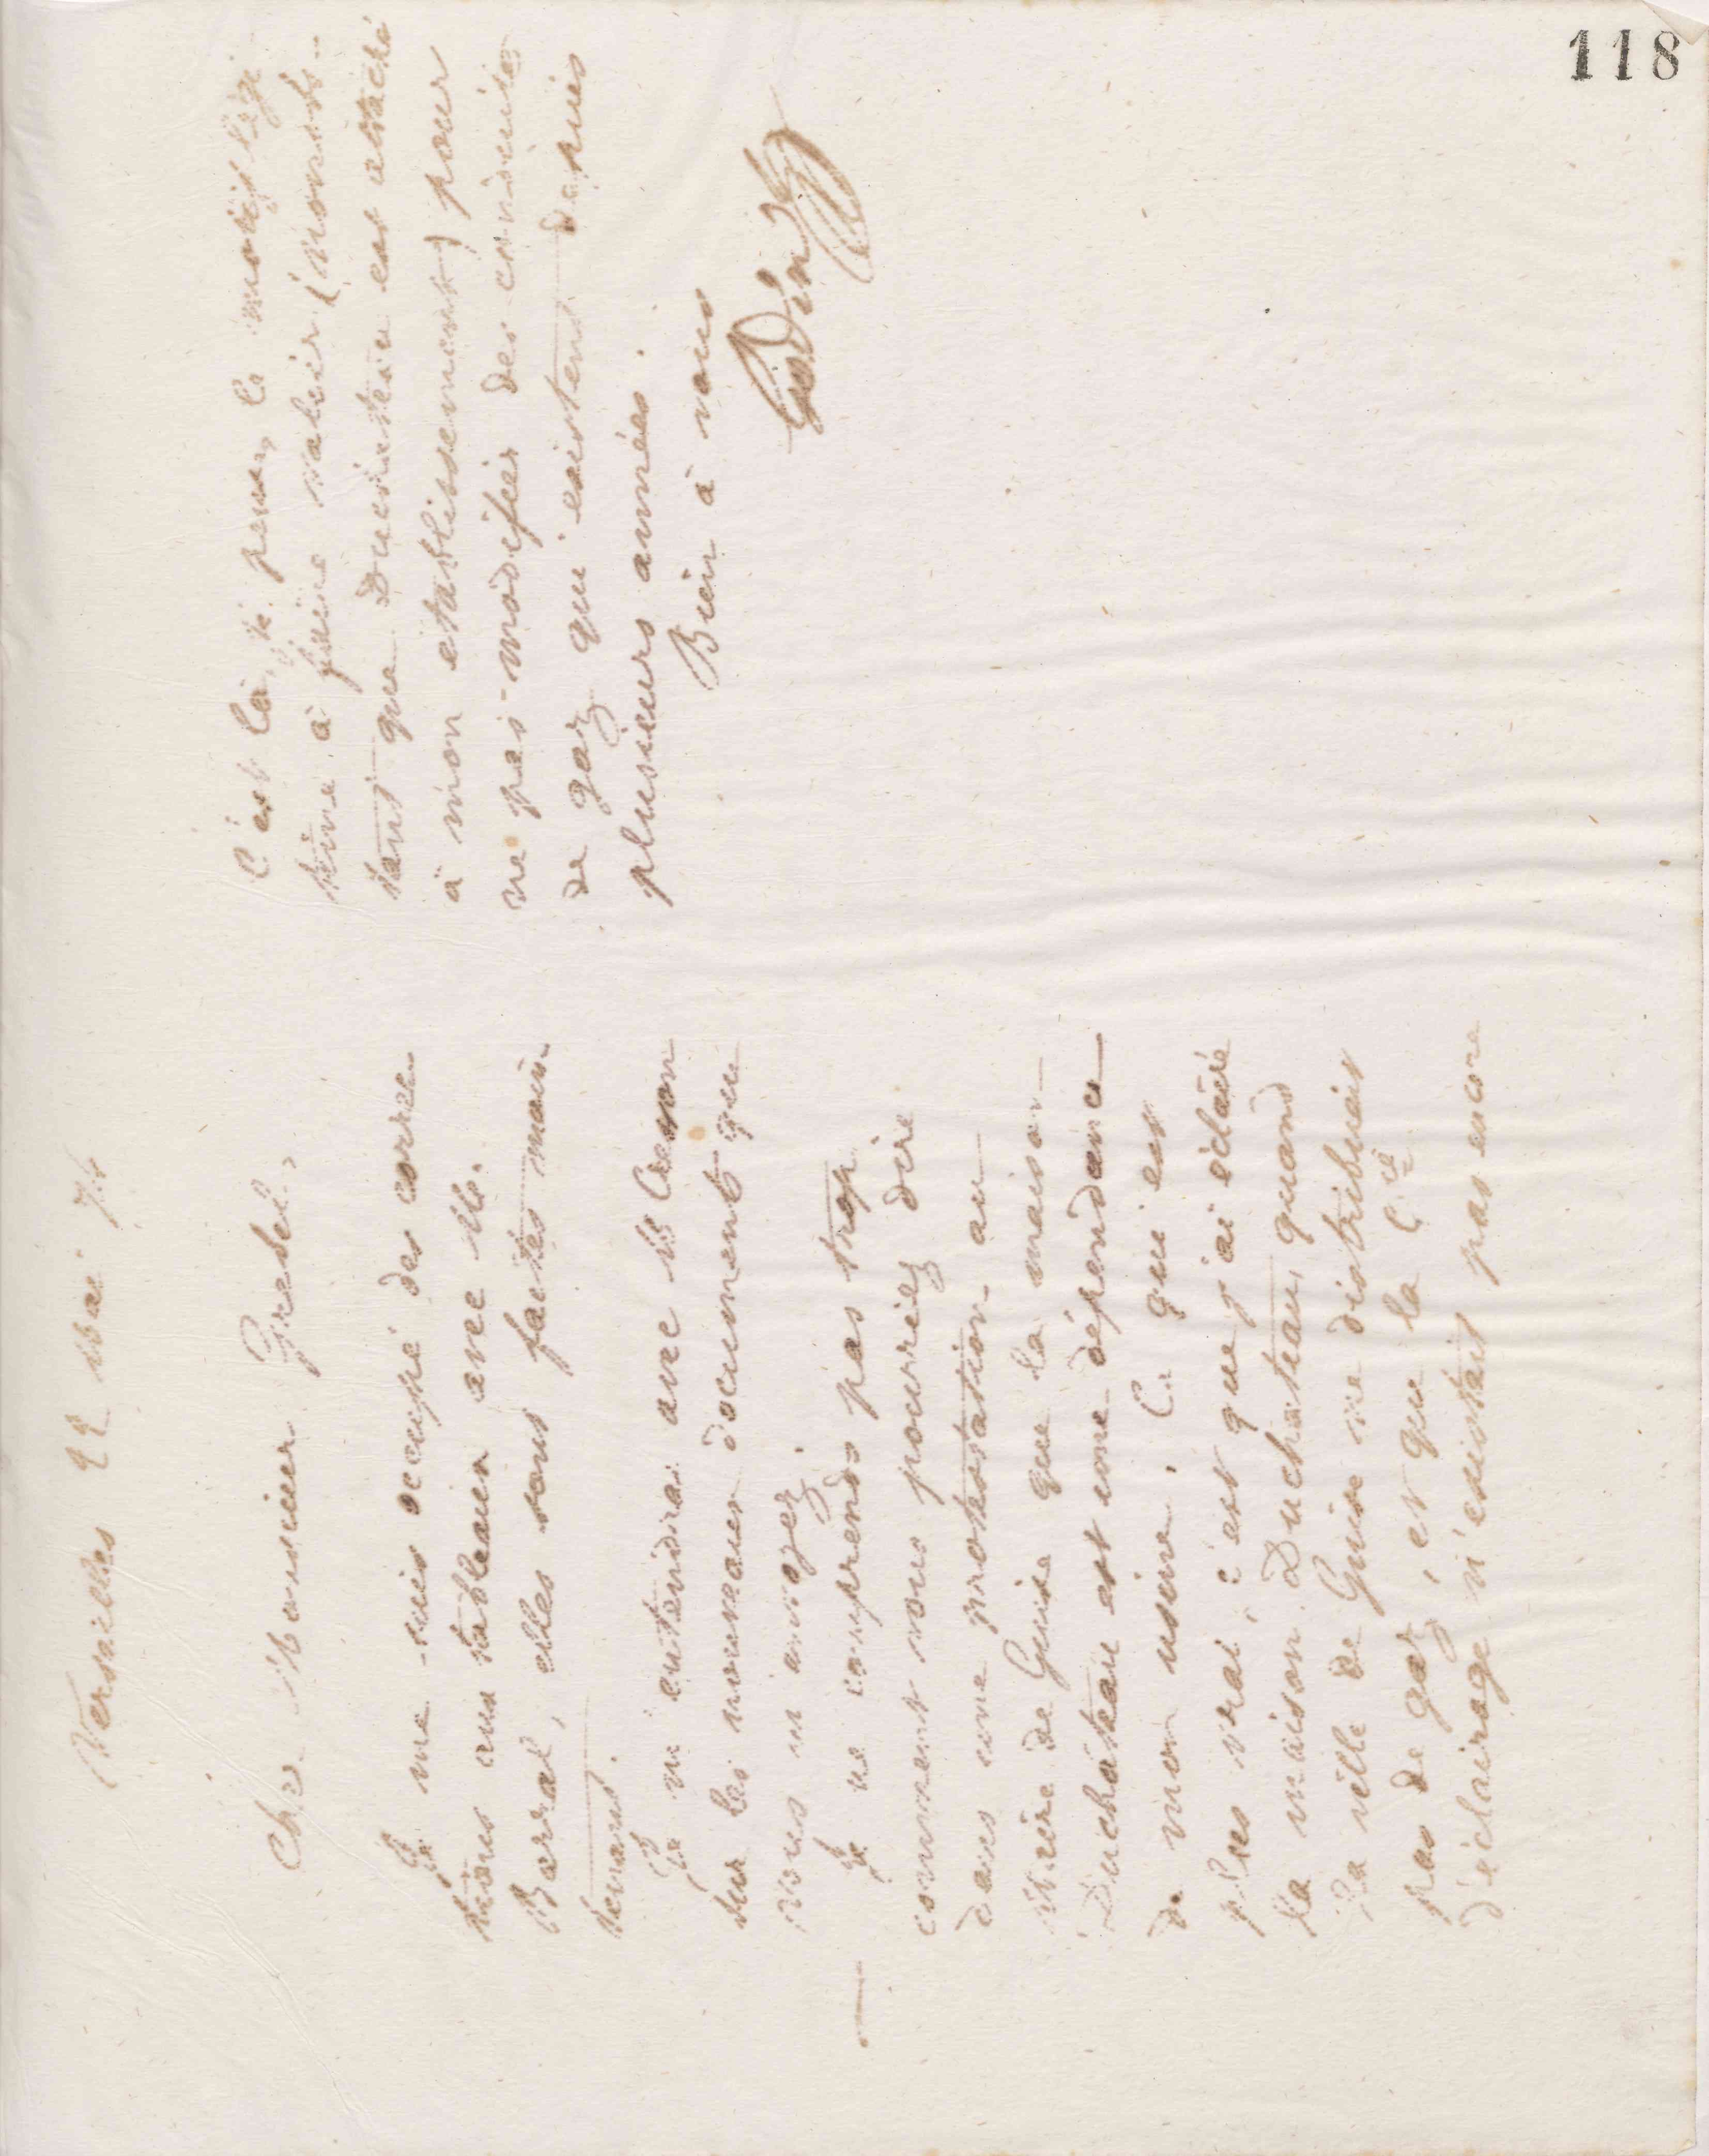 118
Versailles 22 Mai 75
Cher Monsieur Grebel,
Je me suis occupé des correc
tions aux tableaux avec M.
Barral, elles sont faites main-
tenant.
Je m'entendrai avec Me Cresson
sur les nouveaux documents que
vous m'envoyez.
Je ne comprends pas trop
comment vous pourriez dire
dans une protestation au
Maire de Guise que la maison
Duchâteau est une dépendance
de mon usine. Ce qui est
plus vrai, c'est que j'ai éclairé
la maison Duchateau, quand
la ville de Guise ne distribuait
pas de gaz, et que la Cie
d'éclairage n'existait pas encore
C'est là, je pense, le motif légi
time à faire valoir (monob-
stant que Duchateau est attaché
à mon établissement) pour
ne pas modifier des conduites
de gaz qui existent depuis
plusieurs années.
Bien à vous
Godin